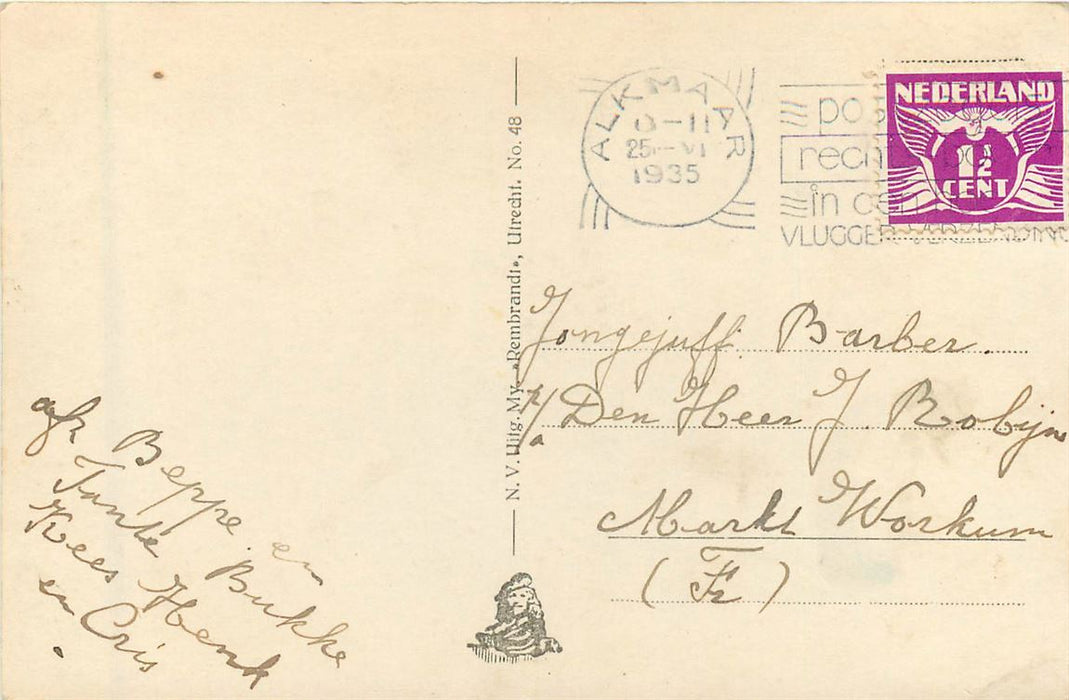 ALKMAAR
25 VI
1935
NEDERLAND
1½
CENT
in
VLUGGER
N. V. Uitg. My. „Rembrandt”, Utrecht. No. 48
Jongejuff. Barber.
p/a Den Heer J. Robijn
Markt Workum
(Fr)
afz Beppe en
Tante Bukke
Kees Henk
en Cris